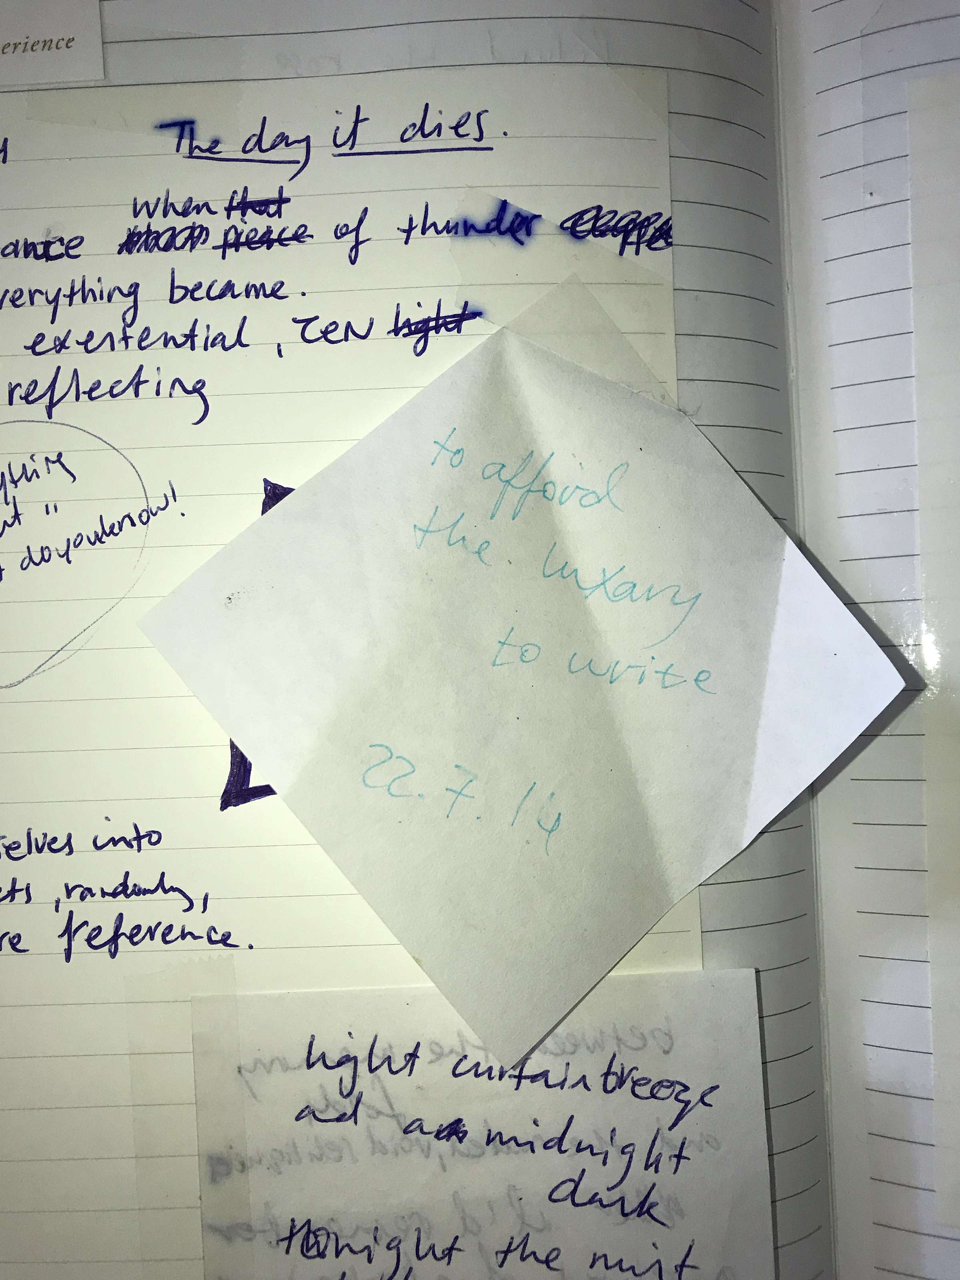 erience
The day it dies.
when that
ance pierce of thunder
verything became.
exestential, ZEN light
reflecting
ything
ut "
doyouknow!
to afford
the luxary
to write
22.7.14
selves into
ets, randomly,
re reference.
light curtain breeze
and a midnight
dark
tonight the mist